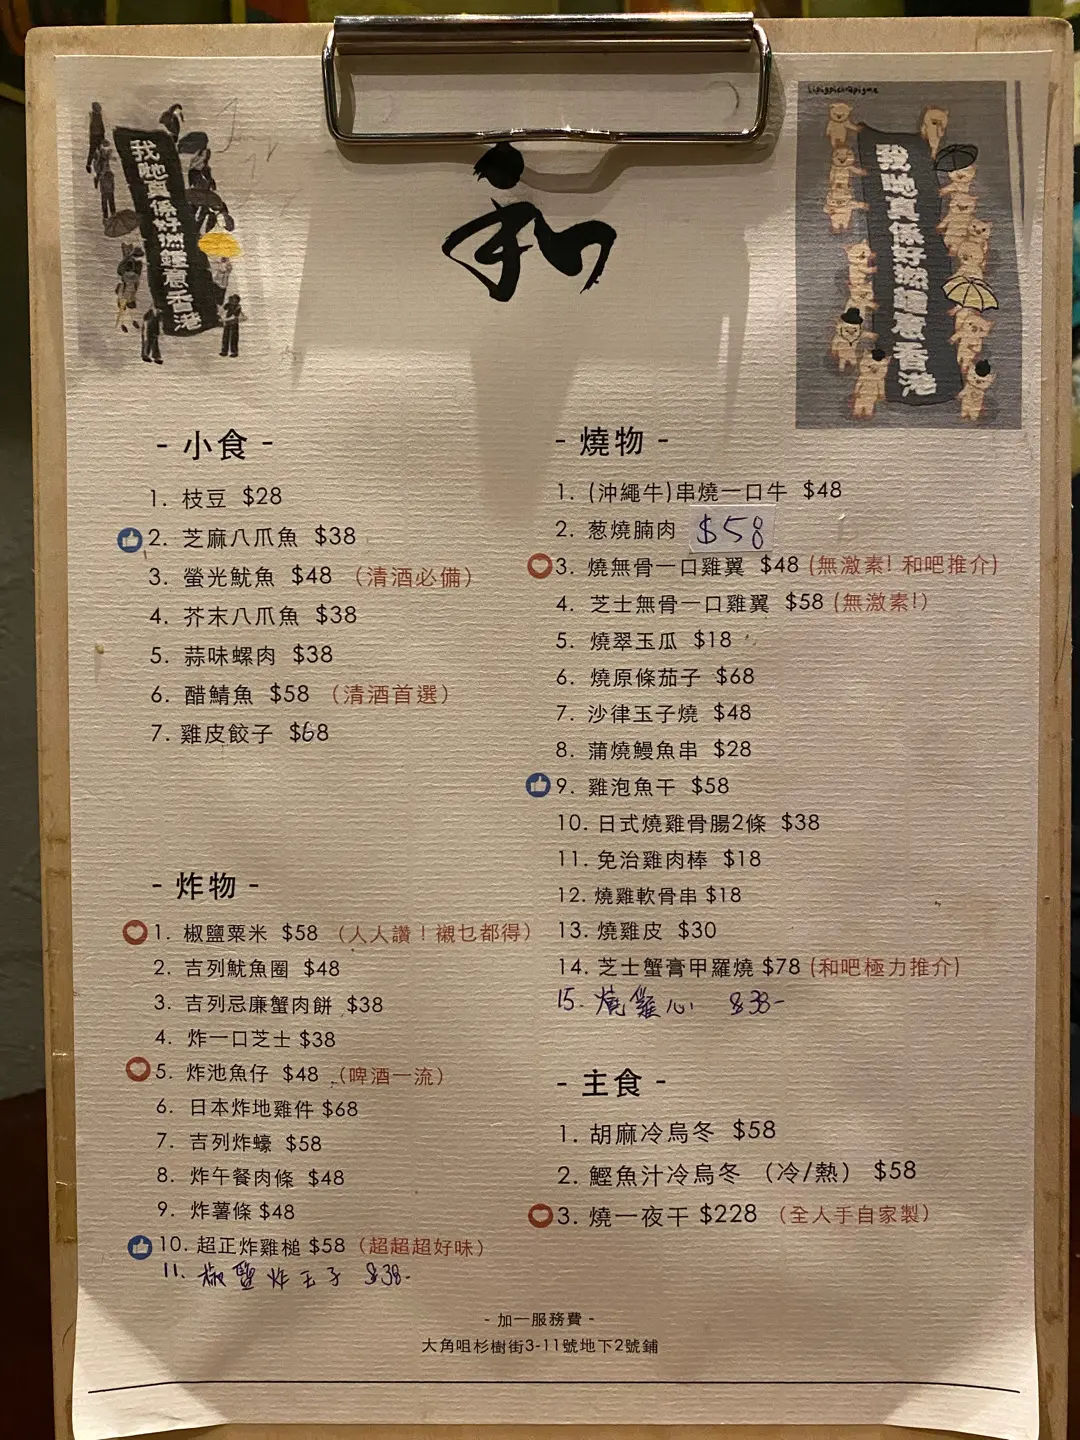 我哋真係好撚鍾意香港
lipigpictapigme
我哋真係好撚鍾意香港
和
- 小食 -
1. 枝豆 $28
2. 芝麻八爪魚 $38
3. 螢光魷魚 $48 （清酒必備）
4. 芥末八爪魚 $38
5. 蒜味螺肉 $38
6. 醋鯖魚 $58 （清酒首選）
7. 雞皮餃子 $68
- 炸物 -
1. 椒鹽粟米 $58 （人人讚！襯乜都得）
2. 吉列魷魚圈 $48
3. 吉列忌廉蟹肉餅 $38
4. 炸一口芝士 $38
5. 炸池魚仔 $48 （啤酒一流）
6. 日本炸地雞件 $68
7. 吉列炸蠔 $58
8. 炸午餐肉條 $48
9. 炸薯條 $48
10. 超正炸雞槌 $58 （超超超好味）
11. 椒鹽炸玉子 $38-
- 燒物 -
1. (沖繩牛)串燒一口牛 $48
2. 葱燒腩肉 $58
3. 燒無骨一口雞翼 $48 (無激素! 和吧推介)
4. 芝士無骨一口雞翼 $58 (無激素!)
5. 燒翠玉瓜 $18
6. 燒原條茄子 $68
7. 沙律玉子燒 $48
8. 蒲燒鰻魚串 $28
9. 雞泡魚干 $58
10. 日式燒雞骨腸2條 $38
11. 免治雞肉棒 $18
12. 燒雞軟骨串 $18
13. 燒雞皮 $30
14. 芝士蟹膏甲羅燒 $78 (和吧極力推介)
15. 燒雞心 $38-
- 主食 -
1. 胡麻冷烏冬 $58
2. 鰹魚汁冷烏冬 （冷/熱） $58
3. 燒一夜干 $228 （全人手自家製）
- 加一服務費 -
大角咀杉樹街3-11號地下2號鋪